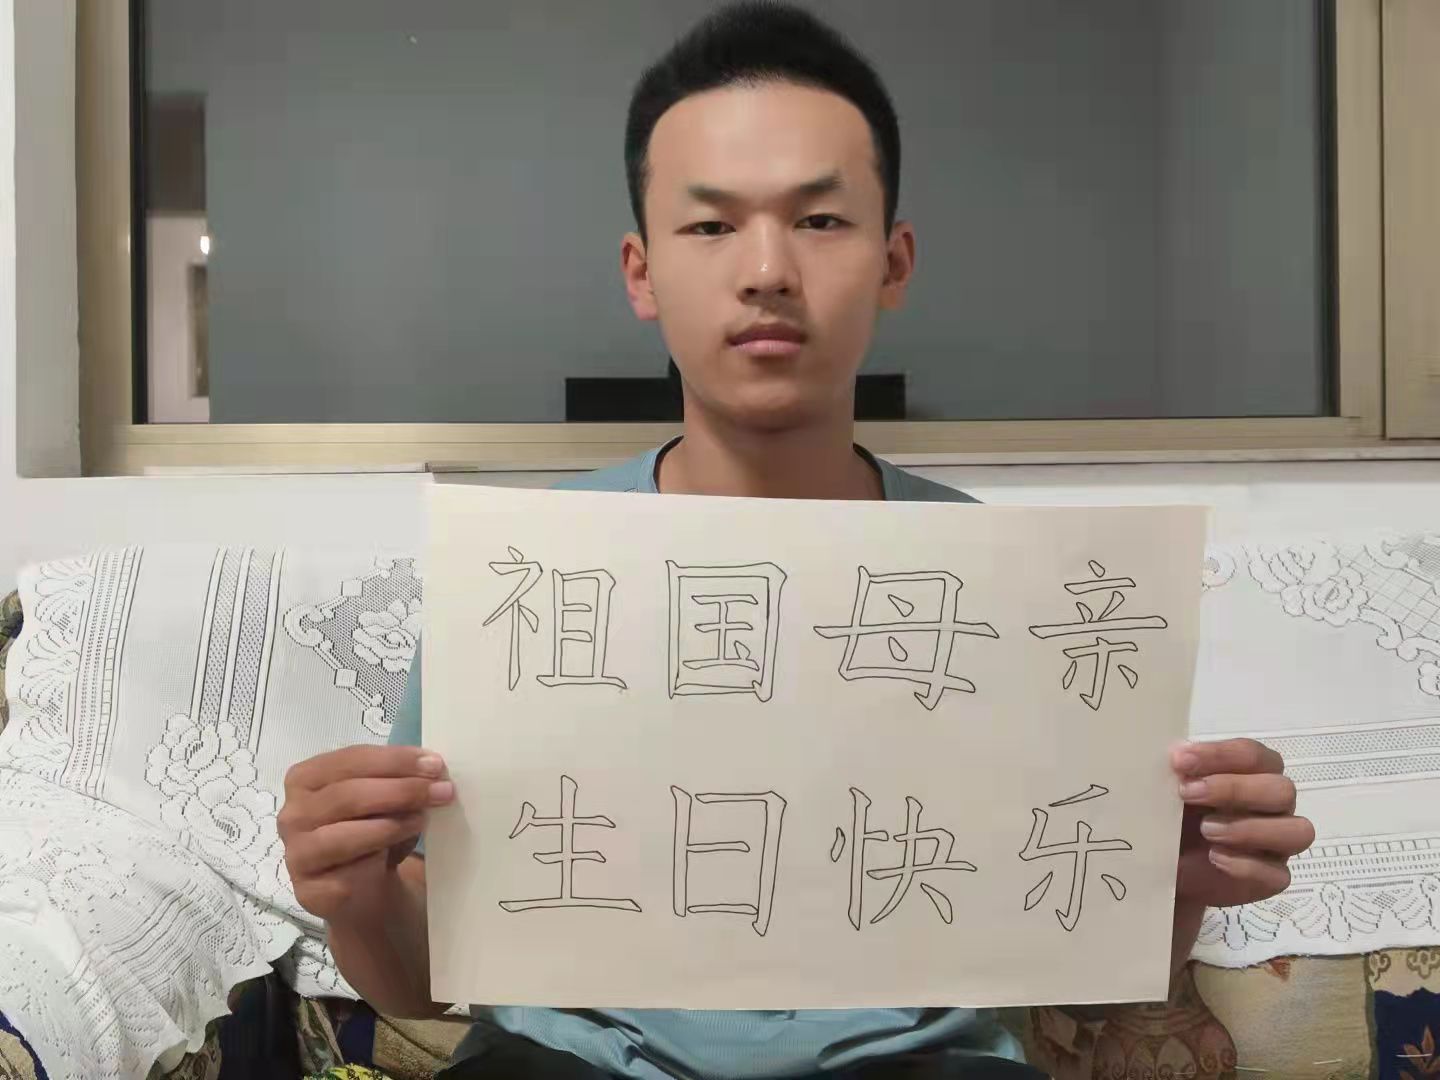 祖国母亲
生日快乐